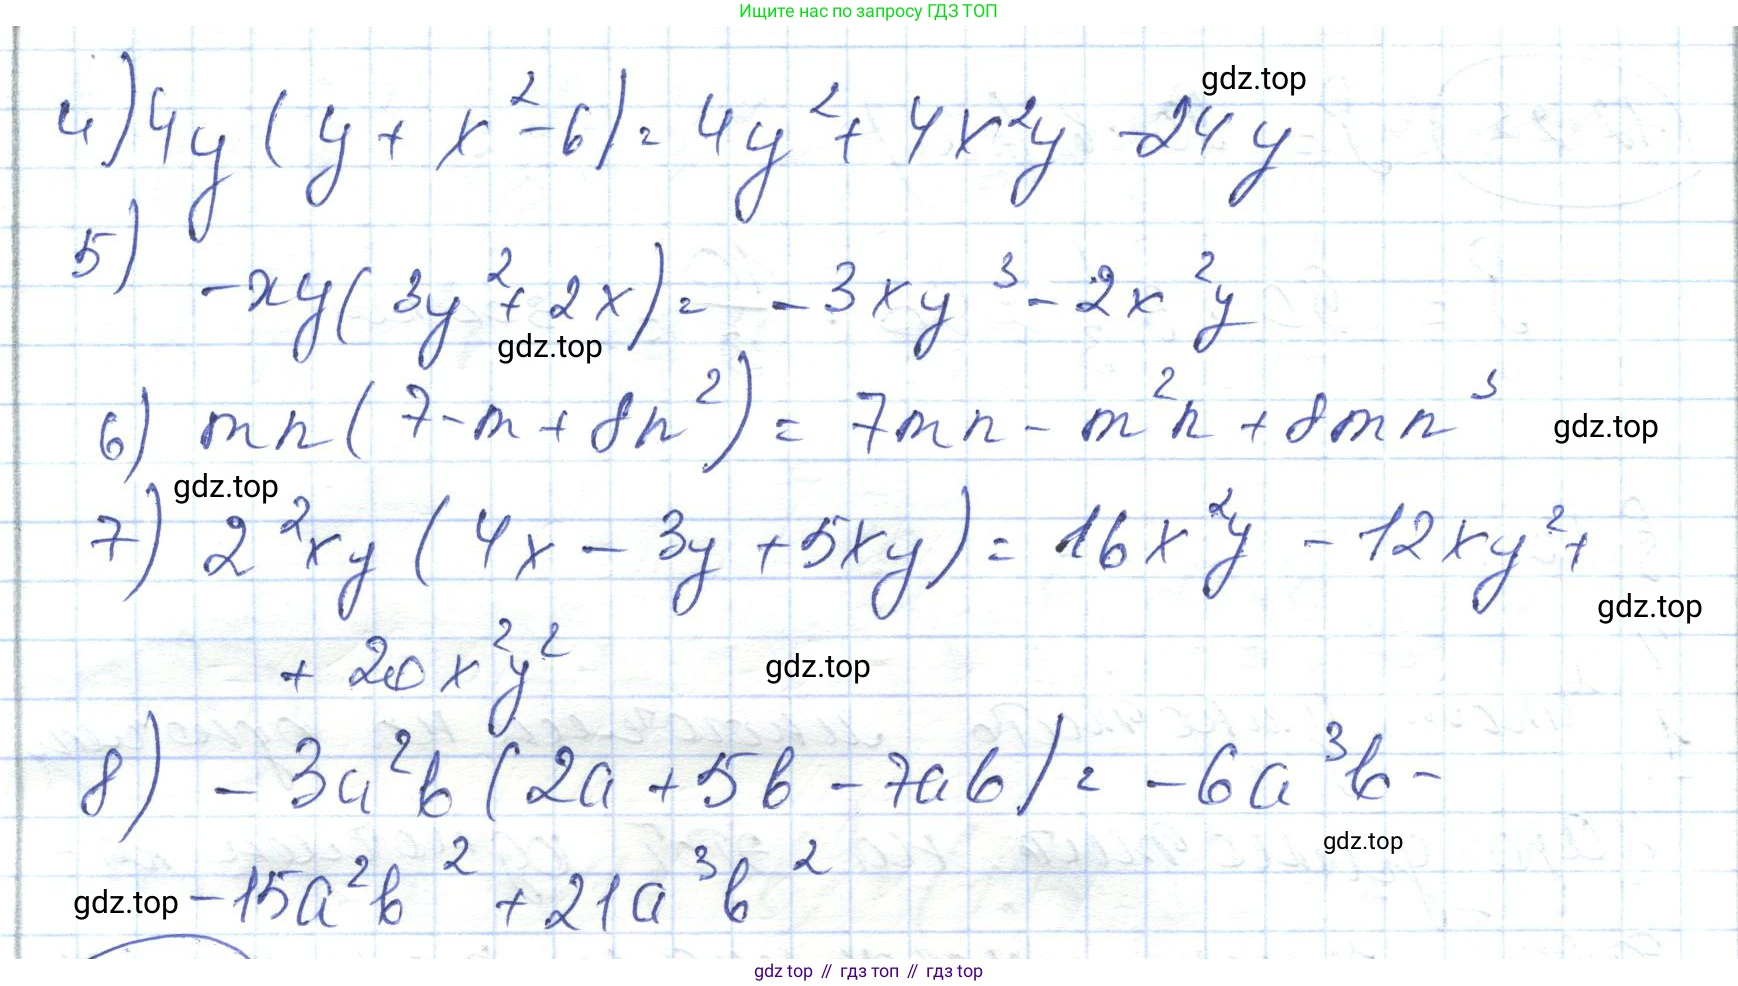 Ищите нас по запросу ГДЗ ТОП
gdz.top
4) 4y (y + x² - 6) = 4y² + 4x²y - 24y
5) -xy (3y² + 2x) = -3xy³ - 2x²y
gdz.top
6) mn (7 - m + 8n²) = 7mn - m²n + 8mn³
gdz.top
gdz.top
7) 2²xy (4x - 3y + 5xy) = 16x²y - 12xy² +
gdz.top
+ 20x²y²
gdz.top
8) -3a²b (2a + 5b - 7ab) = -6a³b -
gdz.top
gdz.top
-15a²b² + 21a³b²
gdz top // гдз топ // гдз top